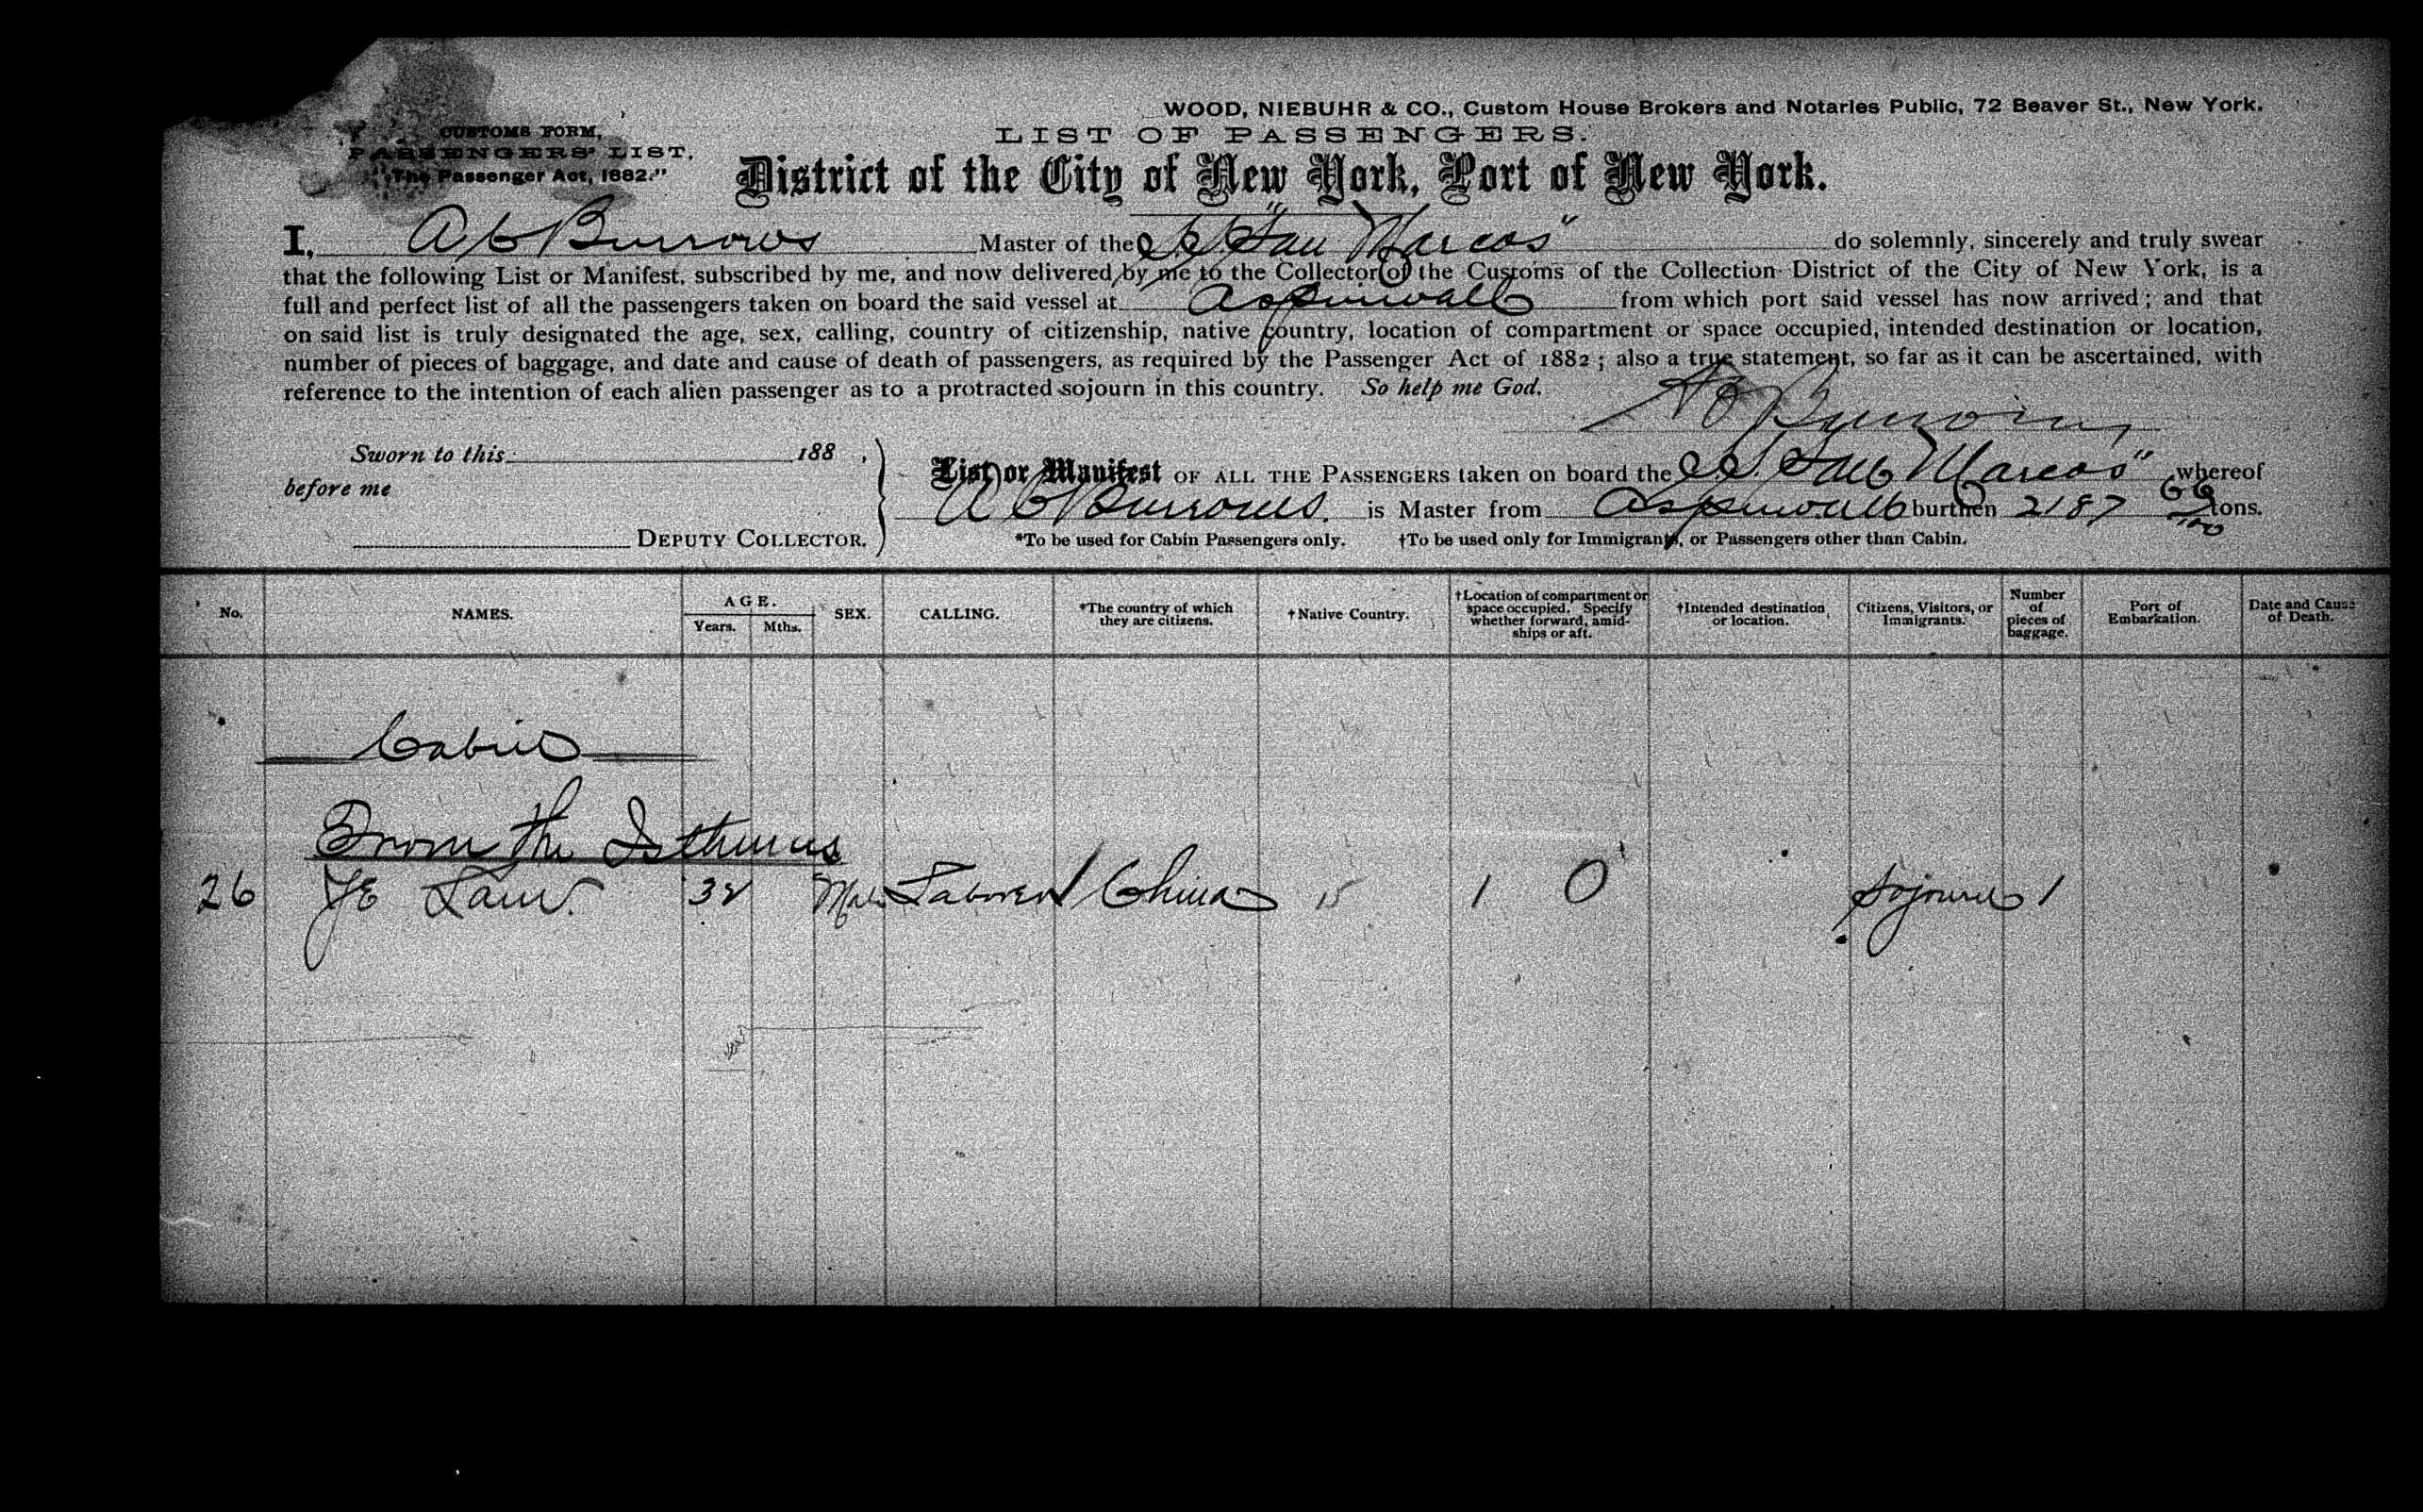 WOOD, NIEBUHR & CO., Custom House Brokers and Notaries Public, 72 Beaver St., New York.
CUSTOMS FORM,
PASSENGERS' LIST.
"The Passenger Act, 1882."
LIST OF PASSENGERS.
District of the City of New York, Port of New York.
I, A C Burrows Master of the S.S. "San Marcos" do solemnly, sincerely and truly swear
that the following List or Manifest, subscribed by me, and now delivered by me to the Collector of the Customs of the Collection District of the City of New York, is a
full and perfect list of all the passengers taken on board the said vessel at Aspinwall from which port said vessel has now arrived; and that
on said list is truly designated the age, sex, calling, country of citizenship, native country, location of compartment or space occupied, intended destination or location,
number of pieces of baggage, and date and cause of death of passengers, as required by the Passenger Act of 1882; also a true statement, so far as it can be ascertained, with
reference to the intention of each alien passenger as to a protracted sojourn in this country. So help me God.
A C Burrows
Sworn to this 188 ,
before me
DEPUTY COLLECTOR.
List or Manifest OF ALL THE PASSENGERS taken on board the S.S. San Marcos" whereof
A C Burrows. is Master from Aspinwall burthen 2187 66/100 tons.
*To be used for Cabin Passengers only. †To be used only for Immigrants, or Passengers other than Cabin.
No. NAMES. AGE. Years. Mths. SEX. CALLING. *The country of which they are citizens. †Native Country. †Location of compartment or space occupied. Specify whether forward, amidships or aft. †Intended destination or location. Citizens, Visitors, or Immigrants. Number of pieces of baggage. Port of Embarkation. Date and Cause of Death.
Cabin
From the Isthmus
26 Male Laborer China 1 0 Sojourn 1